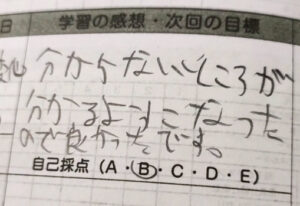 学習の感想・次回の目標
分からないところが
分かるようになった
ので良かったです。
自己採点（A・B・C・D・E）